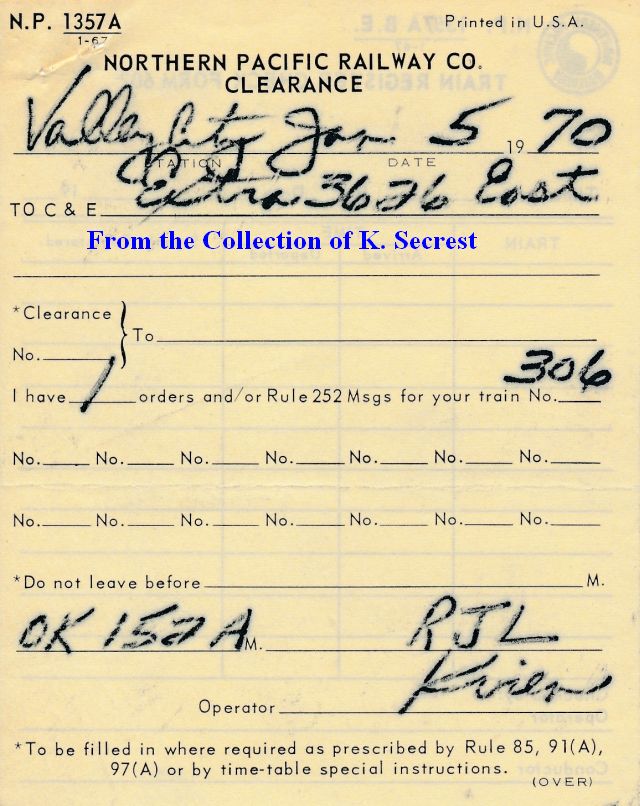 N.P. 1357A Printed in U.S.A.
1-67
NORTHERN PACIFIC RAILWAY CO.
CLEARANCE
Valley City Jan 5 1970
STATION DATE
TO C & E Extra 3626 East
From the Collection of K. Secrest
*Clearance
No. To
I have 1 orders and/or Rule 252 Msgs for your train No. 306
No. No. No. No. No. No. No.
No. No. No. No. No. No. No.
*Do not leave before M.
OK 152 A M. RJL
Operator Kvien
*To be filled in where required as prescribed by Rule 85, 91(A),
97(A) or by time-table special instructions.
(OVER)